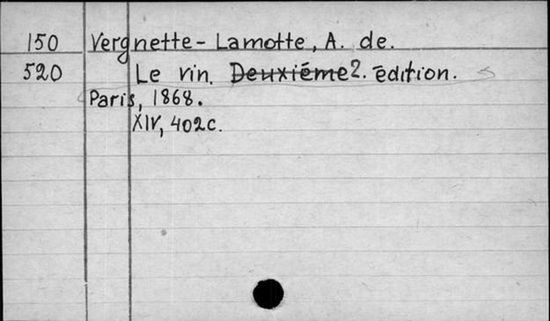 150 Vergnette-Lamotte, A. de.
520 Le vin. Deuxiéme 2. édition.
Paris, 1868.
XIV, 402c.